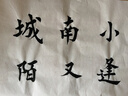 小逢
南又
城陌